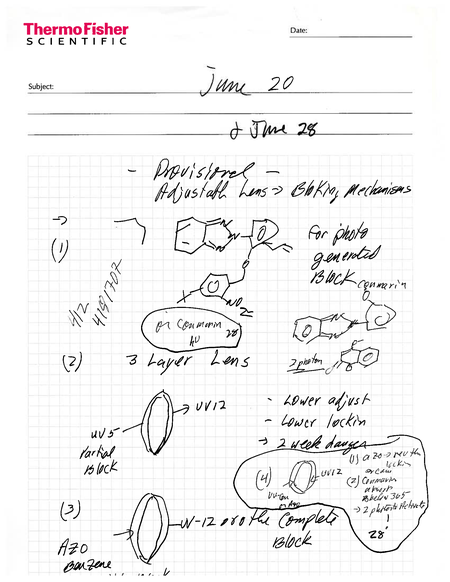 ThermoFisher
SCIENTIFIC
Date:
Subject:
June 20
& June 28
- Provisional -
Adjustable Lens → Blocking Mechanisms
→
(1)
For photo
generated
Block
coumarin
412
4191707
N
N
N
O
NO2
or Coumarin
28
2 photon
(2) 3 Layer Lens
→ UV12
UV5
Partial
Block
- Lower adjust
- Lower lockin
→ 2 week danger
(4)
UV12
(1) azo
lockin
(2) Coumarin
absorb
Below 365
→ 2 photon Activate
!
28
(3)
UV-12 ortho Complete
Block
AZO
Benzene